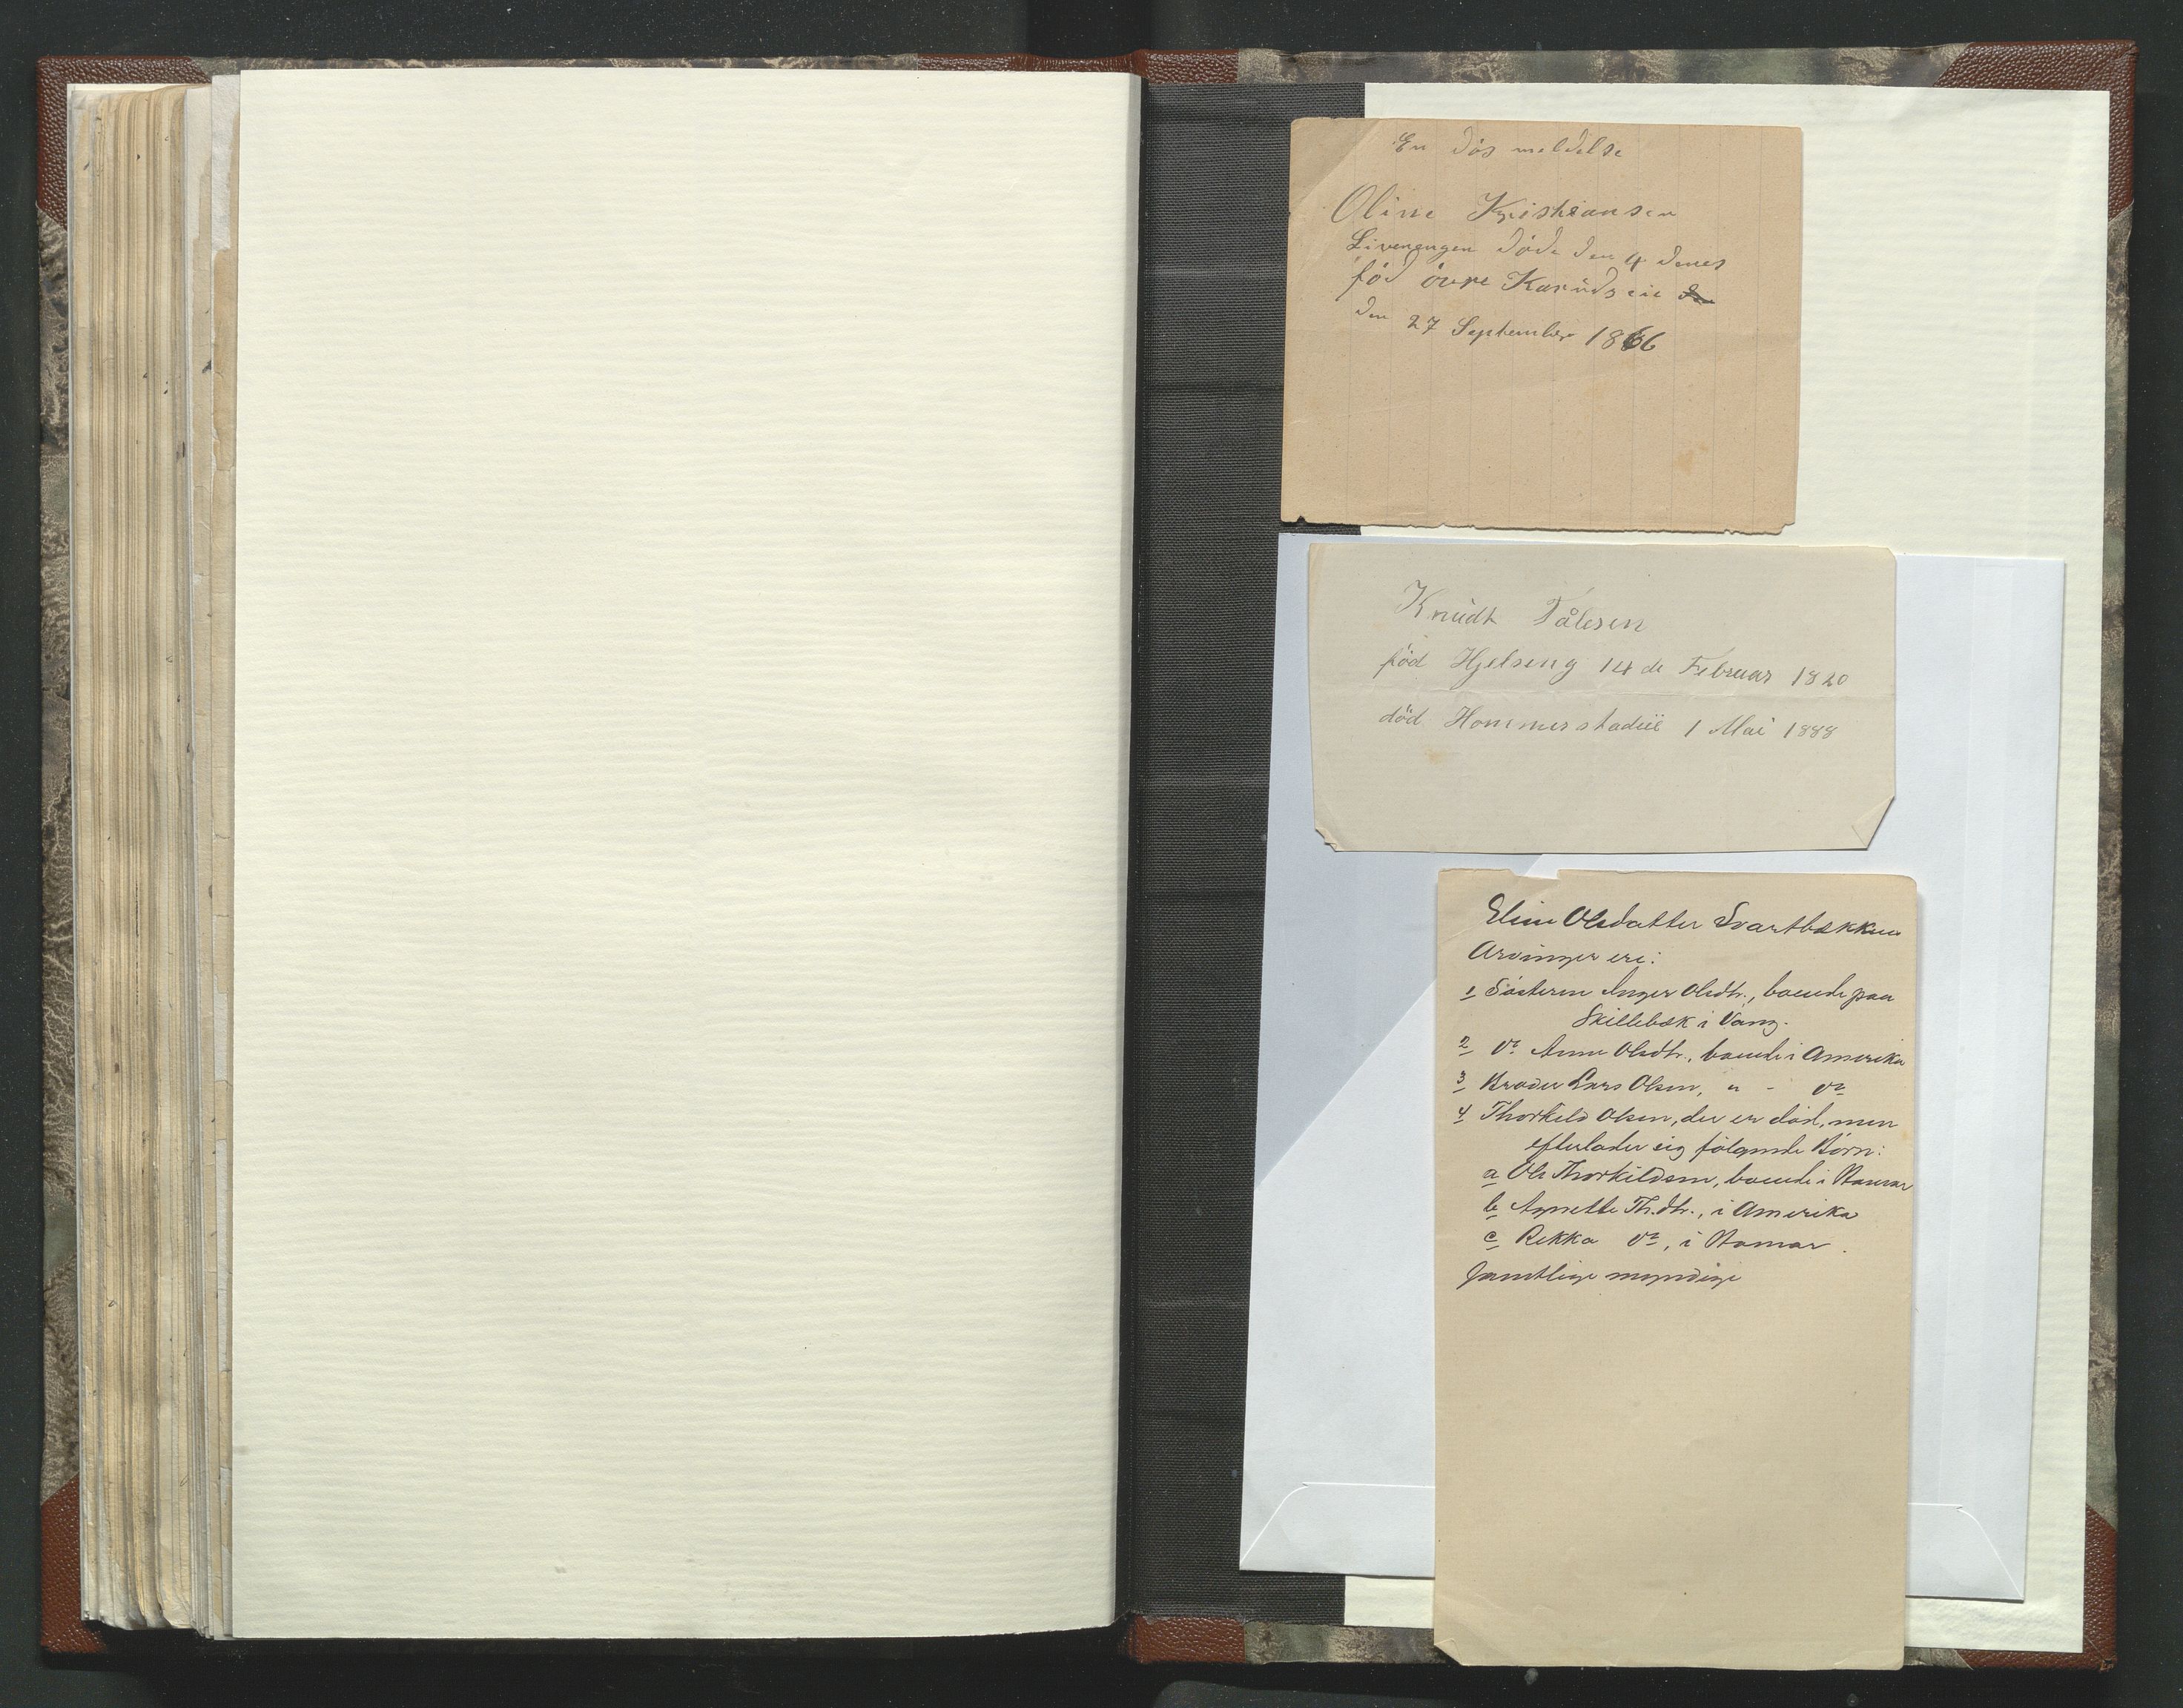 En dös meldelse
Oline Kristiansen
Livenengen döde den 4 denes
föd övre Karüds eie
den 27 September 1866
Knüdt Pålesen
föd Hjelseng 14 de Februar 1820
död Hommerstadeie 1 Mai 1888
Eline Olsdatter Svartbækken
Arvinger ere:
1 Søsteren Inger Olsdtr., boende paa
Skillebæk i Vang.
2 do Anne Olsdtr., boende i Amerika
3 Broder Lars Olsen, " - do
4 Thorkild Olsen, der er död, men
efterlader sig fölgende Börn:
a Ole Thorkildsen, boende i Hamar
b Agnethe Th.dtr., i Amerika
c Rikka do, i Hamar.
Samtlige myndige